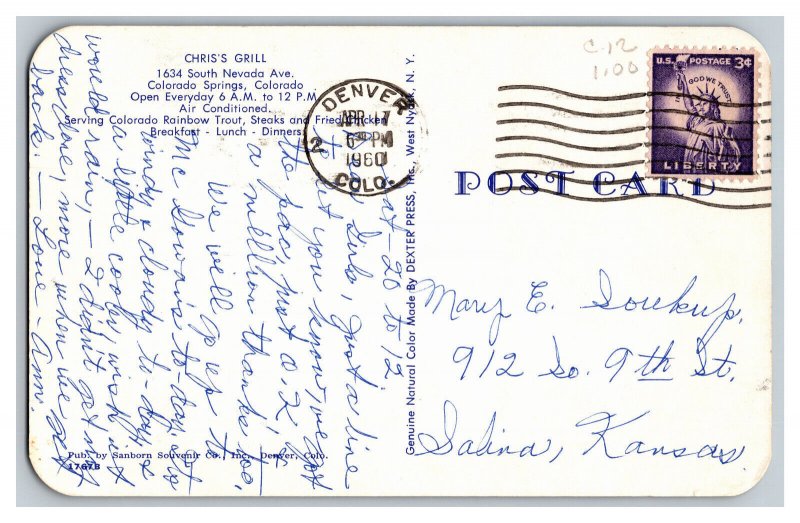 CHRIS'S GRILL
1634 South Nevada Ave.
Colorado Springs, Colorado
Open Everyday 6 A.M. to 12 P.M.
Air Conditioned
Serving Colorado Rainbow Trout, Steaks and Fried Chicken
Breakfast - Lunch - Dinners
20 to 12
Dear Girls, Just a line
to let you know, we got
the pac, just o.k. &
a million thanks too,
We will go up to
Mc Gowan's to-day, its
windy & cloudy to-day &
a little cooler, wish it
would rain, - I didn't get my
dress done, more when we get
back. - Love - Ann.
Pub. by Sanborn Souvenir Co., Inc., Denver, Colo.
17678
Genuine Natural Color Made By DEXTER PRESS, Inc., West Nyack, N. Y.
DENVER
APR 17
6 PM
1960
COLO.
2
C-12
1.00
U.S. POSTAGE 3¢
IN GOD WE TRUST
LIBERTY
POST CARD
Mary E. Soukup,
912 So. 9th St.
Salina, Kansas.